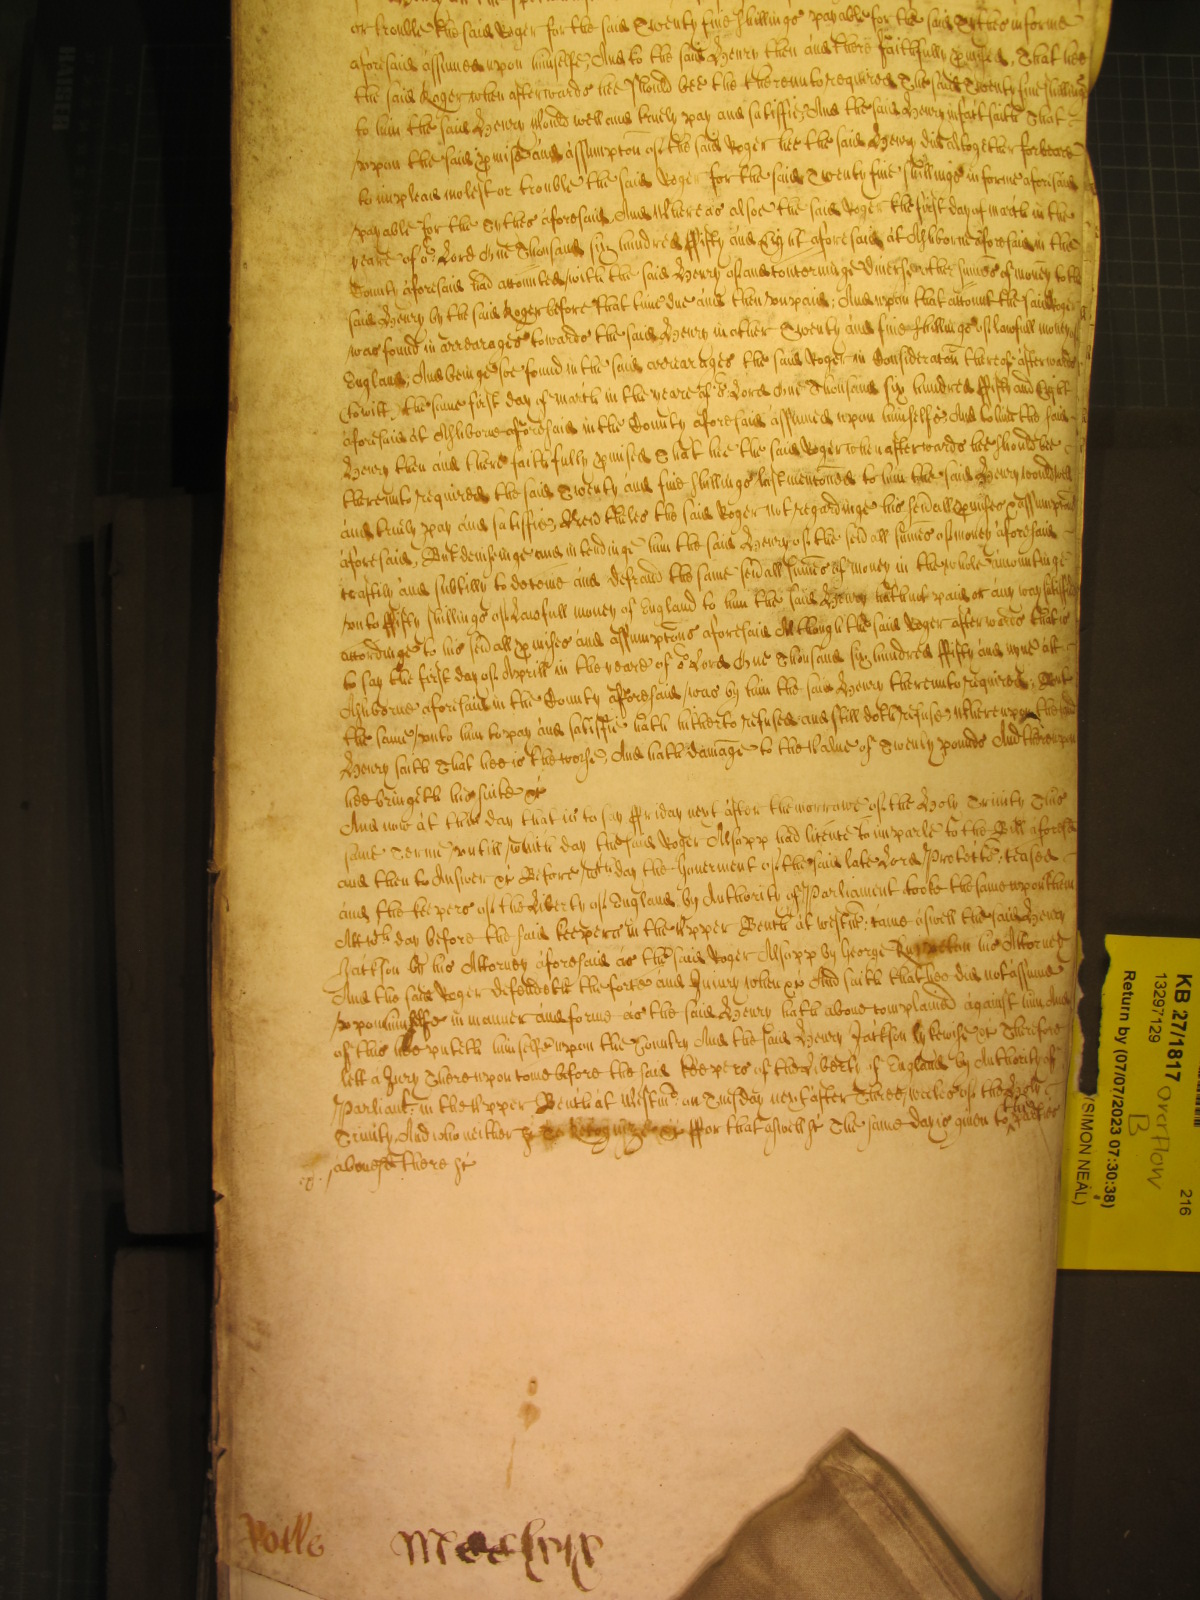 or trouble the said Roger for the said Twenty five shillings payable for the said Tythes in forme
aforesaid assumed upon himselfe, And to the said Henry then and there faithfully pmised, That hee
the said Roger when afterwards hee should bee the thereunto required The said Twenty five shillings
to him the said Henry would well and truely pay and satisfie, And the said Henry in fact saith That
upon the said pmise and assumpcon of the said Roger hee the said Henry did altogether forbeare
to impleade molest or trouble the said Roger for the said Twenty five shillings in forme aforesaid
payable for the Tythes aforesaid, And Whereas alsoe the said Roger the first day of march in the
yeare of or Lord One Thousand six hundred ffifty and Eight aforesaid at Ashborne aforesaid in the
County aforesaid had accompted with the said Henry of and concerninge divers other summes of money to the
said Henry by the said Roger before that time due and then unpaid; And upon that accompt the said Roger
was found in arrearages towards the said Henry in other Twenty and five shillings of lawfull money of
England; And beinge soe found in the said arrearages the said Roger in Consideracon thereof afterwards
(towitt) the same first day of march in the yeare of or Lord One Thousand six hundred ffifty and Eight
aforesaid at Ashborne aforesaid in the County aforesaid assumed upon himselfe, And to him the said
Henry then and there faithfully pmised That hee the said Roger when afterwards hee should bee
thereunto required the said Twenty and five shillings last mentoned to him the said Henry would well
and truely pay and satisfie, Neverthelес the said Roger not regardinge his sevall pmises & assumptons
aforesaid, But deviseinge and intendinge him the said Henry of the sevall summes of money aforesaid
craftily and subtilly to deceive and defraud the same sevall summes of money in the whole amountinge
unto ffifty shillings of Lawfull money of England to him the said Henry hath not paid or any way satisfied
accordinge to his sevall pmises and assumptons aforesaid Although the said Roger afterwards that is
to say the first day of Aprill in the yeare of or Lord One Thousand six hundred ffifty and nyne att
Ashborne aforesaid in the County aforesaid was by him the said Henry thereunto required; But
the same unto him to pay and satisfie hath hitherto refused and still doth refuse, whereupon the said
Henry saith That hee is the worse, And hath damage to the Value of Twenty pounds And thereupon
hee bringeth his suite &c
And now at this day that is to say ffriday next after the morrowe of the Holy Trinity This
same Terme untill which day the said Roger Alsopp had licence to imparle to the Bill aforesaid
and then to Answer &c Before wch day the Goverment of the said late Lord Protector ceased
and the keepers of the Liberty of England by Authority of Parliament tooke the same upon them
Att wch day before the said keepers in the Upper Bench at westmr came aswell the said Henry
Jackson by his Attorney aforesaid as the said Roger Alsopp by George his Attorney
And the said Roger defendeth the force and Injury when &c And saith that hee did not assume
upon himselfe in manner and forme as the said Henry hath above complained against him And
of this hee putteth himselfe upon the Country And the said Henry Jackson lykewise &c Therefore
lett a Jury Thereupon come before the said keepers of the Liberty of England by Authority of
Parliamt in the Upper Bench at Westmr on Tuesday next after Three weekes of the Holy
Trinity And who neither &c To Recognize &c ffor that aswell &c The same day is given to the pties
abovesd there &c
Rolle Mccclxix
KB 27/1817
216
13297129
overflow
B
Return by (07/07/2023 07:30:38)
(SIMON NEAL)